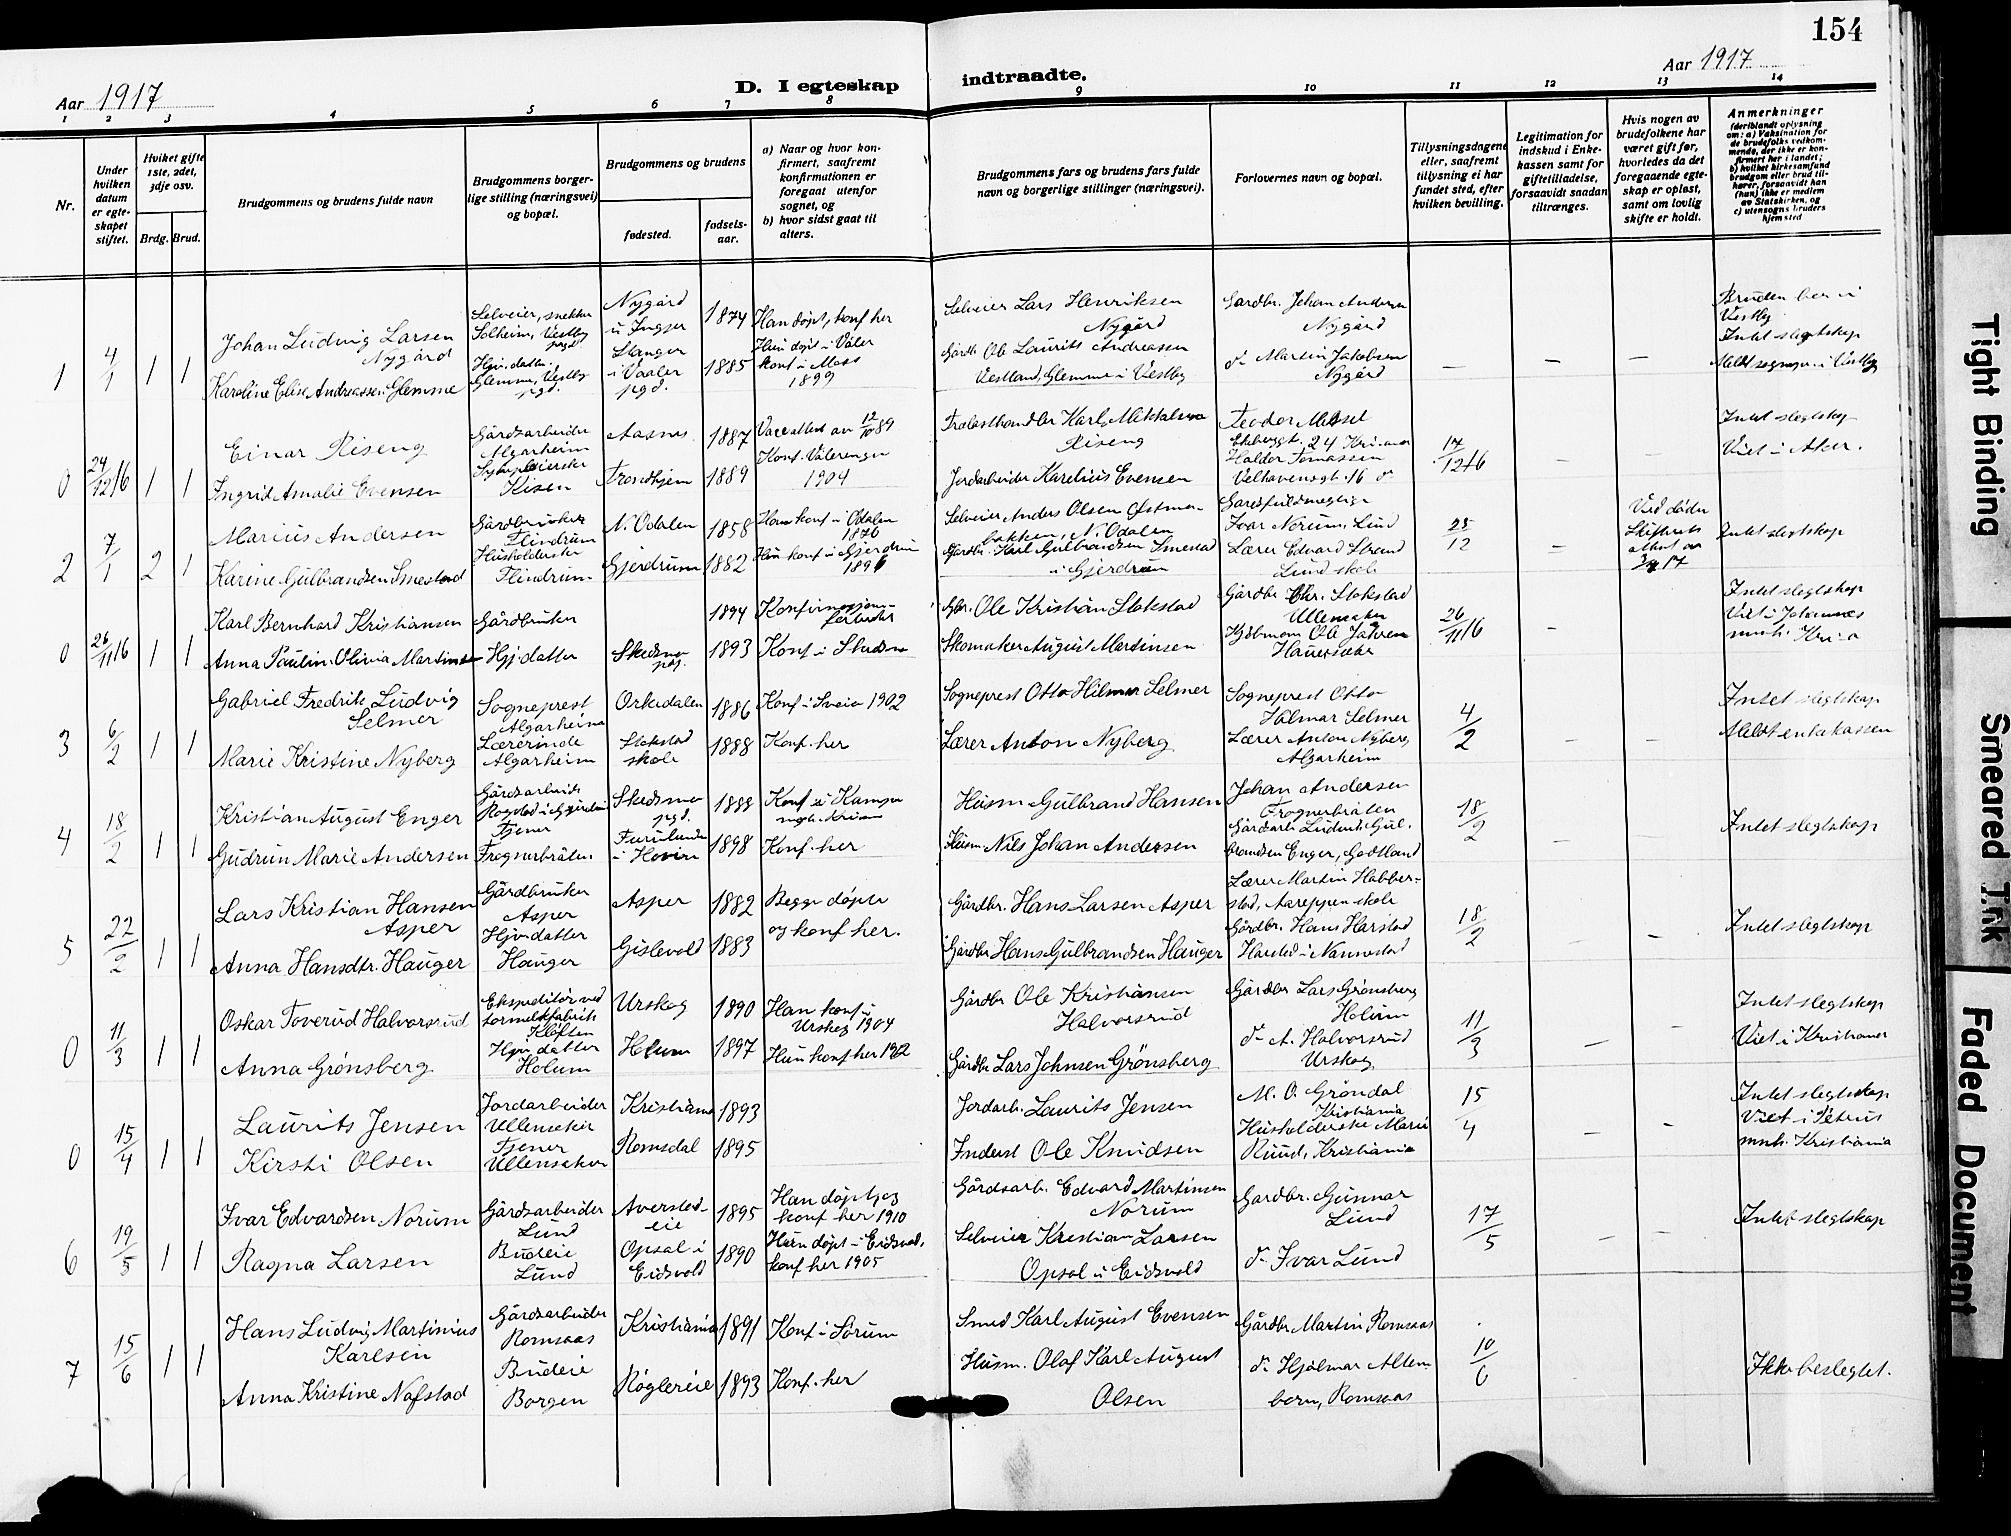 154
Aar 1917
D. I egteskap indtraadte.
Aar 1917
1 2 3 4 5 6 7 8 9 10 11 12 13 14
Nr.
Under hvilken datum er egteskapet stiftet.
Hvilket gifte 1ste, 2det, 3dje osv.
Brdg. Brud.
Brudgommens og brudens fulde navn
Brudgommens borgerlige stilling (næringsvei) og bopæl.
Brudgommens og brudens
fødested. fødselsaar.
a) Naar og hvor konfirmert, saafremt konfirmationen er foregaat utenfor sognet, og
b) hvor sidst gaat til alters.
Brudgommens fars og brudens fars fulde navn og borgerlige stillinger (næringsvei).
Forlovernes navn og bopæl.
Tillysningsdagene eller, saafremt tillysning ei har fundet sted, efter hvilken bevilling.
Legitimation for indskud i Enkekassen samt for giftetilladelse, forsaavidt saadan tiltrænges.
Hvis nogen av brudefolkene har været gift før, hvorledes da det foregaaende egteskap er opløst, samt om lovlig skifte er holdt.
Anmerkninger
(deriblandt oplysning om: a) Vaksination for de brudefolks vedkommende, der ikke er konfirmert her i landet; b) hvilket kirkesamfund brudgom eller brud tilhører, forsaavidt han (hun) ikke er medlem av Statskirken, og c) utensogns bruders hjemsted
1 4/1 1 1
Johan Ludvig Larsen Nygård
Selveier, snekker Solheim, Vestby pgd
Nygård i Ingjer 1874
Han døpt, konf her
Selveier Lars Henriksen Nygård
Gardbr. Johan Andersen Nygård
Bruden her i Vestby
Intet slegtskap
Karoline Elise Andreassen Glemme
Hjv. datter Glemme, Vestby pgd.
Stanger i Vaaler pgd. 1885
Hun døpt i Våler konf i Moss 1899
Gårdb Ole Laurits Andreassen Vestland, Glemme i Vestby
d. Martin Jakobsen Nygård
— — —
0 24/12 16 1 1
Einar Riseng
Gårdsarbeider Algarheim
Aasnes 1887
Vacc attest av 12/10 89
Trælasthandler Karl Riseng
Ekebergt. 24 Kr.ania
17/12 16
Intet slegtskap
Viet i Aker.
Ingrid Amalie Evensen
Kisen
Trondhjem 1889
Konf. Vålerengen 1904
Jordarbeider Karelius Evensen
Haldor Tomassen Velhavensgt. 16 d
2 7/1 2 1
Marius Andersen
Gårdbruker Flindrum
N. Odalen 1858
Han konf i Odalen 1876
Selveier Anders Olsen Østmobakken, N. Odalen
Ivar Norum, Lund
28/12
Ved døden Skifterets attest av
Intet slegtskap
Karine Gulbrandsen Smestad
Husholderske Flindrum
Gjerdrum 1882
Hun konf i Gjerdrum 1896
Gårdbr. Karl Gulbrandsen Smestad i Gjerdrum
Lærer Edvard Strand Lund skole
0 26/11 16 1 1
Karl Bernhard Kristiansen
Gårdbruker
1894
Gbr. Ole Kristian Stokstad
Gårdbr Chr. Stokstad Ullensaker
26/11 16
Intet slegtskap
Viet i Johannes mnh. Kr.a
Anna Pauline Olivia Martinsen
Hjv datter
Skedsmo pgd. 1893
Konf i Skedsmo
Skomaker August Martinsen
Kjøbmann Ole Hauersæter
3 6/2 1 1
Gabriel Fredrik Ludvig Selmer
Sogneprest Algarheim
Orkedalen 1886
Konf i Sveio 1902
Sogneprest Otto Hilmar Selmer
Sogneprest Otto Hilmar Selmer
4/2
Intet slegtskap
Meldt enkekassen
Marie Kristine Nyberg
Lærerinde Algarheim
Stokstad skole 1888
Konf. her
Lærer Anton Nyberg
Lærer Anton Nyberg Algarheim
4 18/2 1 1
Kristian August Enger
Gårdsarbeider Rogstad i Gjerdrum
Skedsmo pgd. 1888
Konf i Kampen mgh. Kr.ania
Husm Gulbrand Hansen
Johan Andersen Frognerbråten
18/2
Intet slegtskap
Gudrun Marie Andersen
Tjener Frognerbråten
Furulunde i Hovin 1898
Konf. her
Husm. Nils Johan Andersen
Gårdsarb Ludvik Gulbrandsen Enger, Godtland
5 22/2 1 1
Lars Kristian Hansen Asper
Gårdbruker Asper
Asper 1882
Begge døpte og konf her.
Gårdbr. Hans Larsen Asper
Lærer Martin Habberstad, Aareppen skole
18/2
Intet slegtskap
Anna Hansdtr. Hauger
Hjv. datter Hauger
Gislevold 1883
Gårdbr Hans Gulbrandsen Hauger
Gårdbr. Hans Harstad Harstad i Nannestad
0 11/3 1 1
Oskar Toverud Halvorsrud
Ekspeditør ved tørmelkfabrik Kløften
Urskog 1890
Han konf i Urskog 1904
Gårdbr Ole Kristiansen Halvorsrud
Gårdbr Lars Grønsberg Holum
11/3
Intet slegtskap
Viet i Kristiania
Anna Grønsberg
Hjv datter Holum
Holum 1897
Hun konf her 1912
Gårdbr Lars Johnsen Grønsberg
d. A. Halvorsrud Urskog
0 15/4 1 1
Laurits Jensen
Jordarbeider Ullensaker
Kristiania 1893
Jordarb. Laurits Jensen
M. O. Grøndal Kristiania
15/4
Intet slegtskap
Viet i Petrus mnh. Kristiania
Kirsti Olsen
Tjener Ullensaker
Romsdal 1895
Inderst Ole Knudsen
Husholderske Marie Ruud, Kristiania
6 19/5 1 1
Ivar Edvardsen Norum
Gårdsarbeider Lund
Averstadeie 1895
Han døpt og konf her 1910
Gårdsarb. Edvard Martinsen Norum
Gardbr. Gunnar Lund
17/5
Intet slegtskap
Ragna Larsen
Budeie Lund
Opsal i Eidsvold 1890
Hun døpt i Eidsvold, konf her 1905
Selveier Kristian Larsen Opsal i Eidsvold
d. Ivar Lund
7 15/6 1 1
Hans Ludvig Martinius Karlsen
Gårdsarbeider Romsaas
Kristiania 1891
Konf i Sørum
Smed Karl August Evensen
Gårdbr Martin Romsaas
10/6
Ikke beslegtet.
Anna Kristine Nafstad
Budeie Borgen
Røglereie 1893
Konf. her
Husm. Olaf Karl August Olsen
d. Hjalmar Altenborn, Romsaas
Tight Binding
Smeared Ink
Faded Document